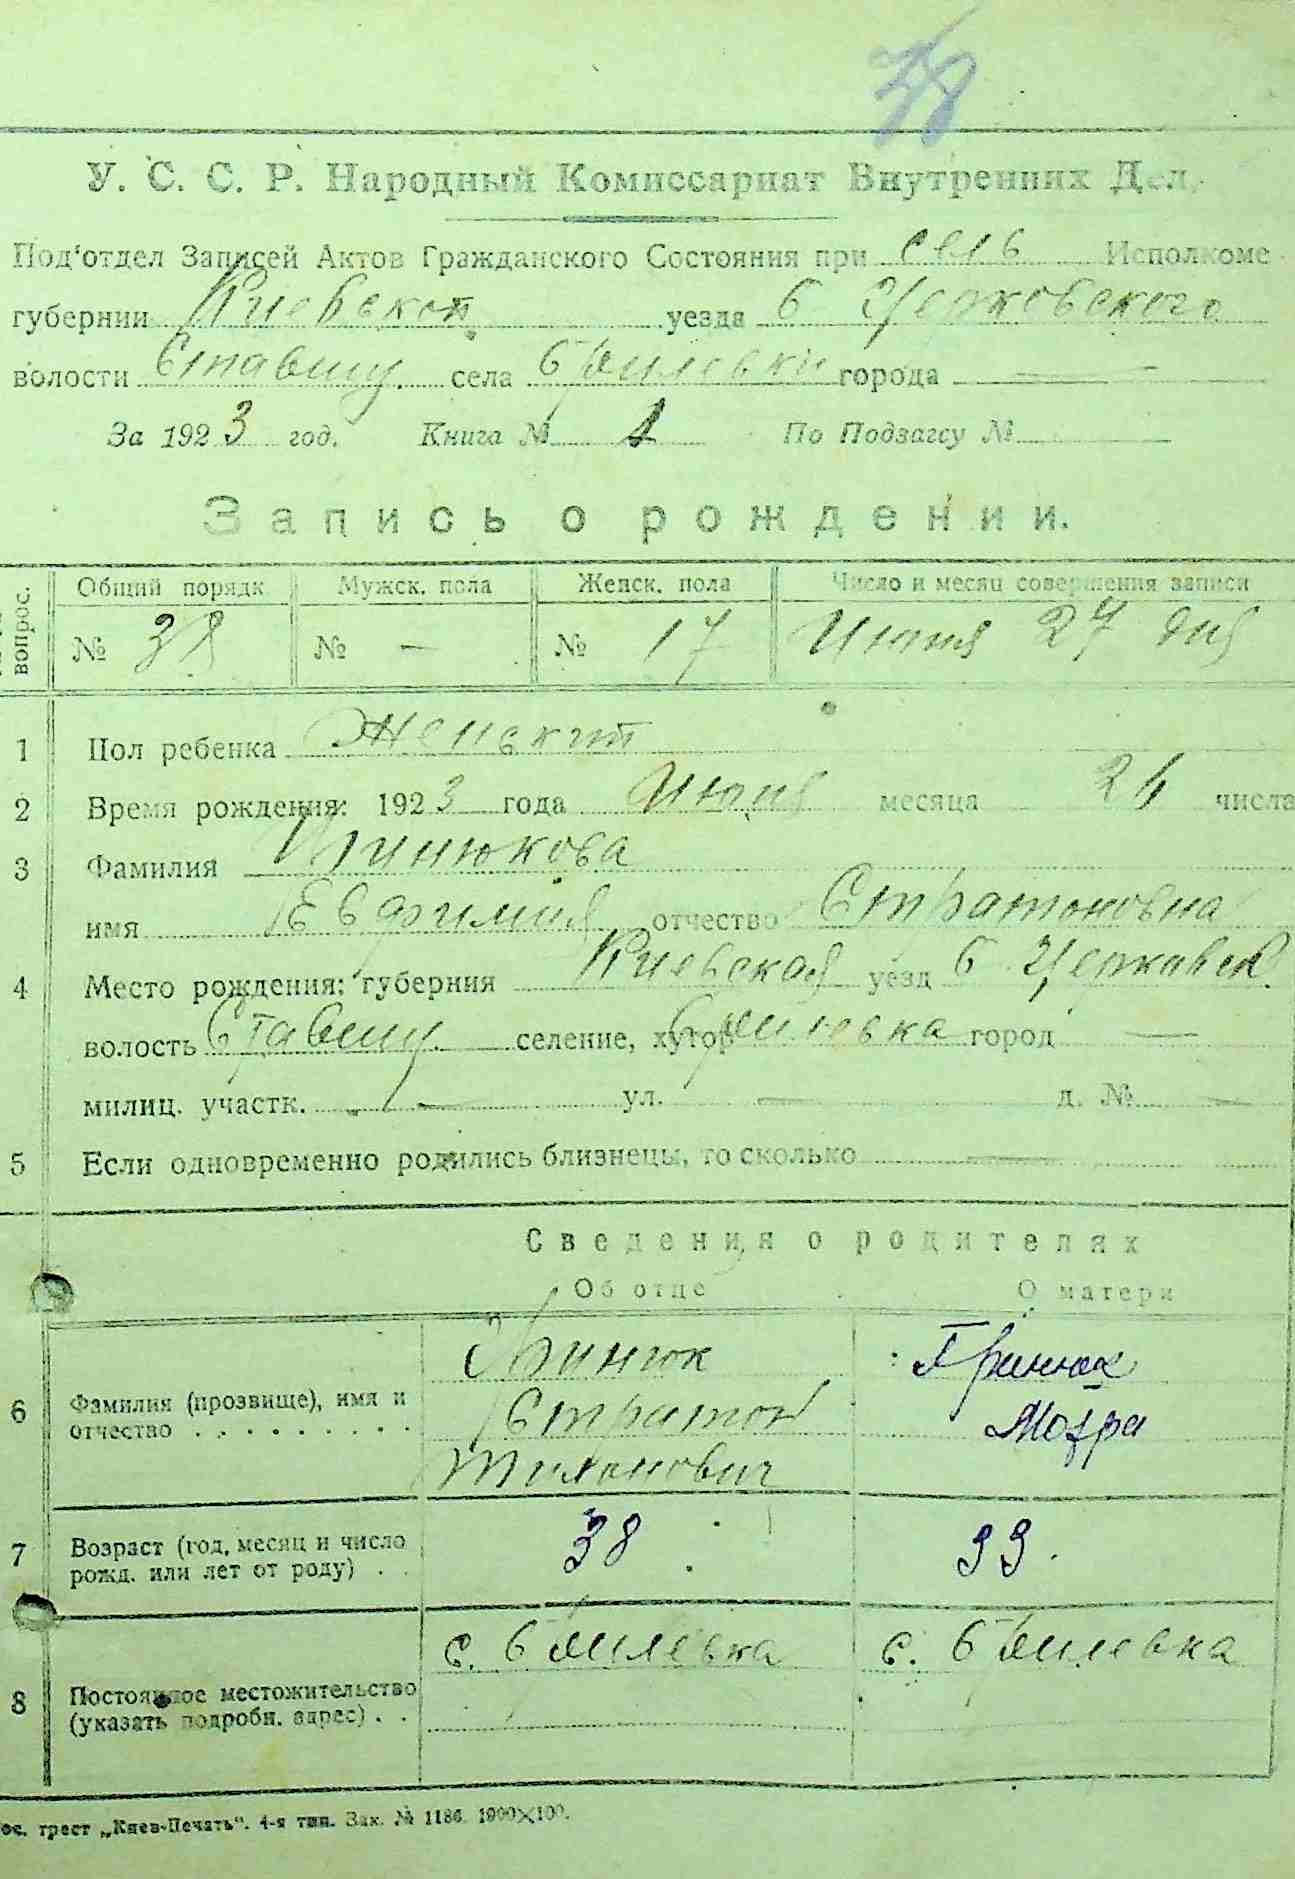 38
У. С. С. Р. Народный Комиссариат Внутренних Дел.
Под'отдел Записей Актов Гражданского Состояния при сель Исполкоме
губернии Киевской уезда Б Церковского
волости Ставищ. села Брилевки города —
За 1923 год. Книга № 1 По Подзагсу №
Запись о рождении.
вопрос. Общий порядк Мужск. пола Женск. пола Число и месяц совершения записи
№ 38 № — № 17 27 дня
1 Пол ребенка Женский
2 Время рождения: 1923 года месяца числа
3 Фамилия
имя Евфимия отчество Стратоновна
4 Место рождения: губерния Киевская уезд Б Церковск.
волость Ставищ. селение, хутор Брилевка город —
милиц. участк. — ул. — д. № —
5 Если одновременно родились близнецы, то сколько —
Сведения о родителях
Об отце О матери
6 Фамилия (прозвище), имя и отчество . . . . . . . .
Гринюк
Стратон
Тихонович
Гринюк
Мотра
7 Возраст (год, месяц и число рожд. или лет от роду) . . 38 33.
8 Постоянное местожительство (указать подробн. адрес) . . с. Брилевка с. Брилевка
ос. трест „Киев-Печать“. 4-я тип. Зак. № 1186. 1900×100.